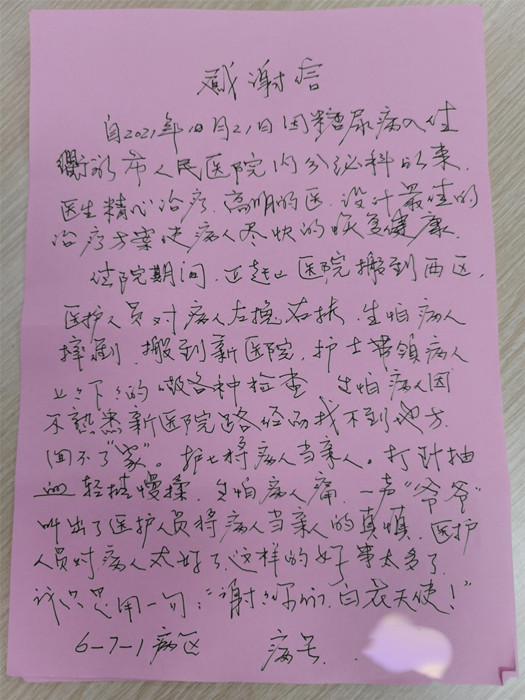 感谢信
自2021年10月21日因糖尿病入住
衢州市人民医院内分泌科以来.
医生精心治疗.高明的医.设计最佳的
治疗方案使病人尽快的恢复健康.
住院期间.正赶上医院搬到西区,
医护人员对病人左搀右扶.生怕病人
摔倒.搬到新医院.护士带领病人
上上下下的做各种检查 生怕病人因
不熟悉新医院路经而找不到地方.
回不了"家"。护士将病人当亲人。打针抽
血轻揉慢揉.生怕病人痛.一声"爷爷"
叫出了医护人员将病人当亲人的真情.医护
人员对病人太好了.这样的好事太多了.
我只是用一句:"谢谢你们.白衣天使!"
6-7-1病区 病号.